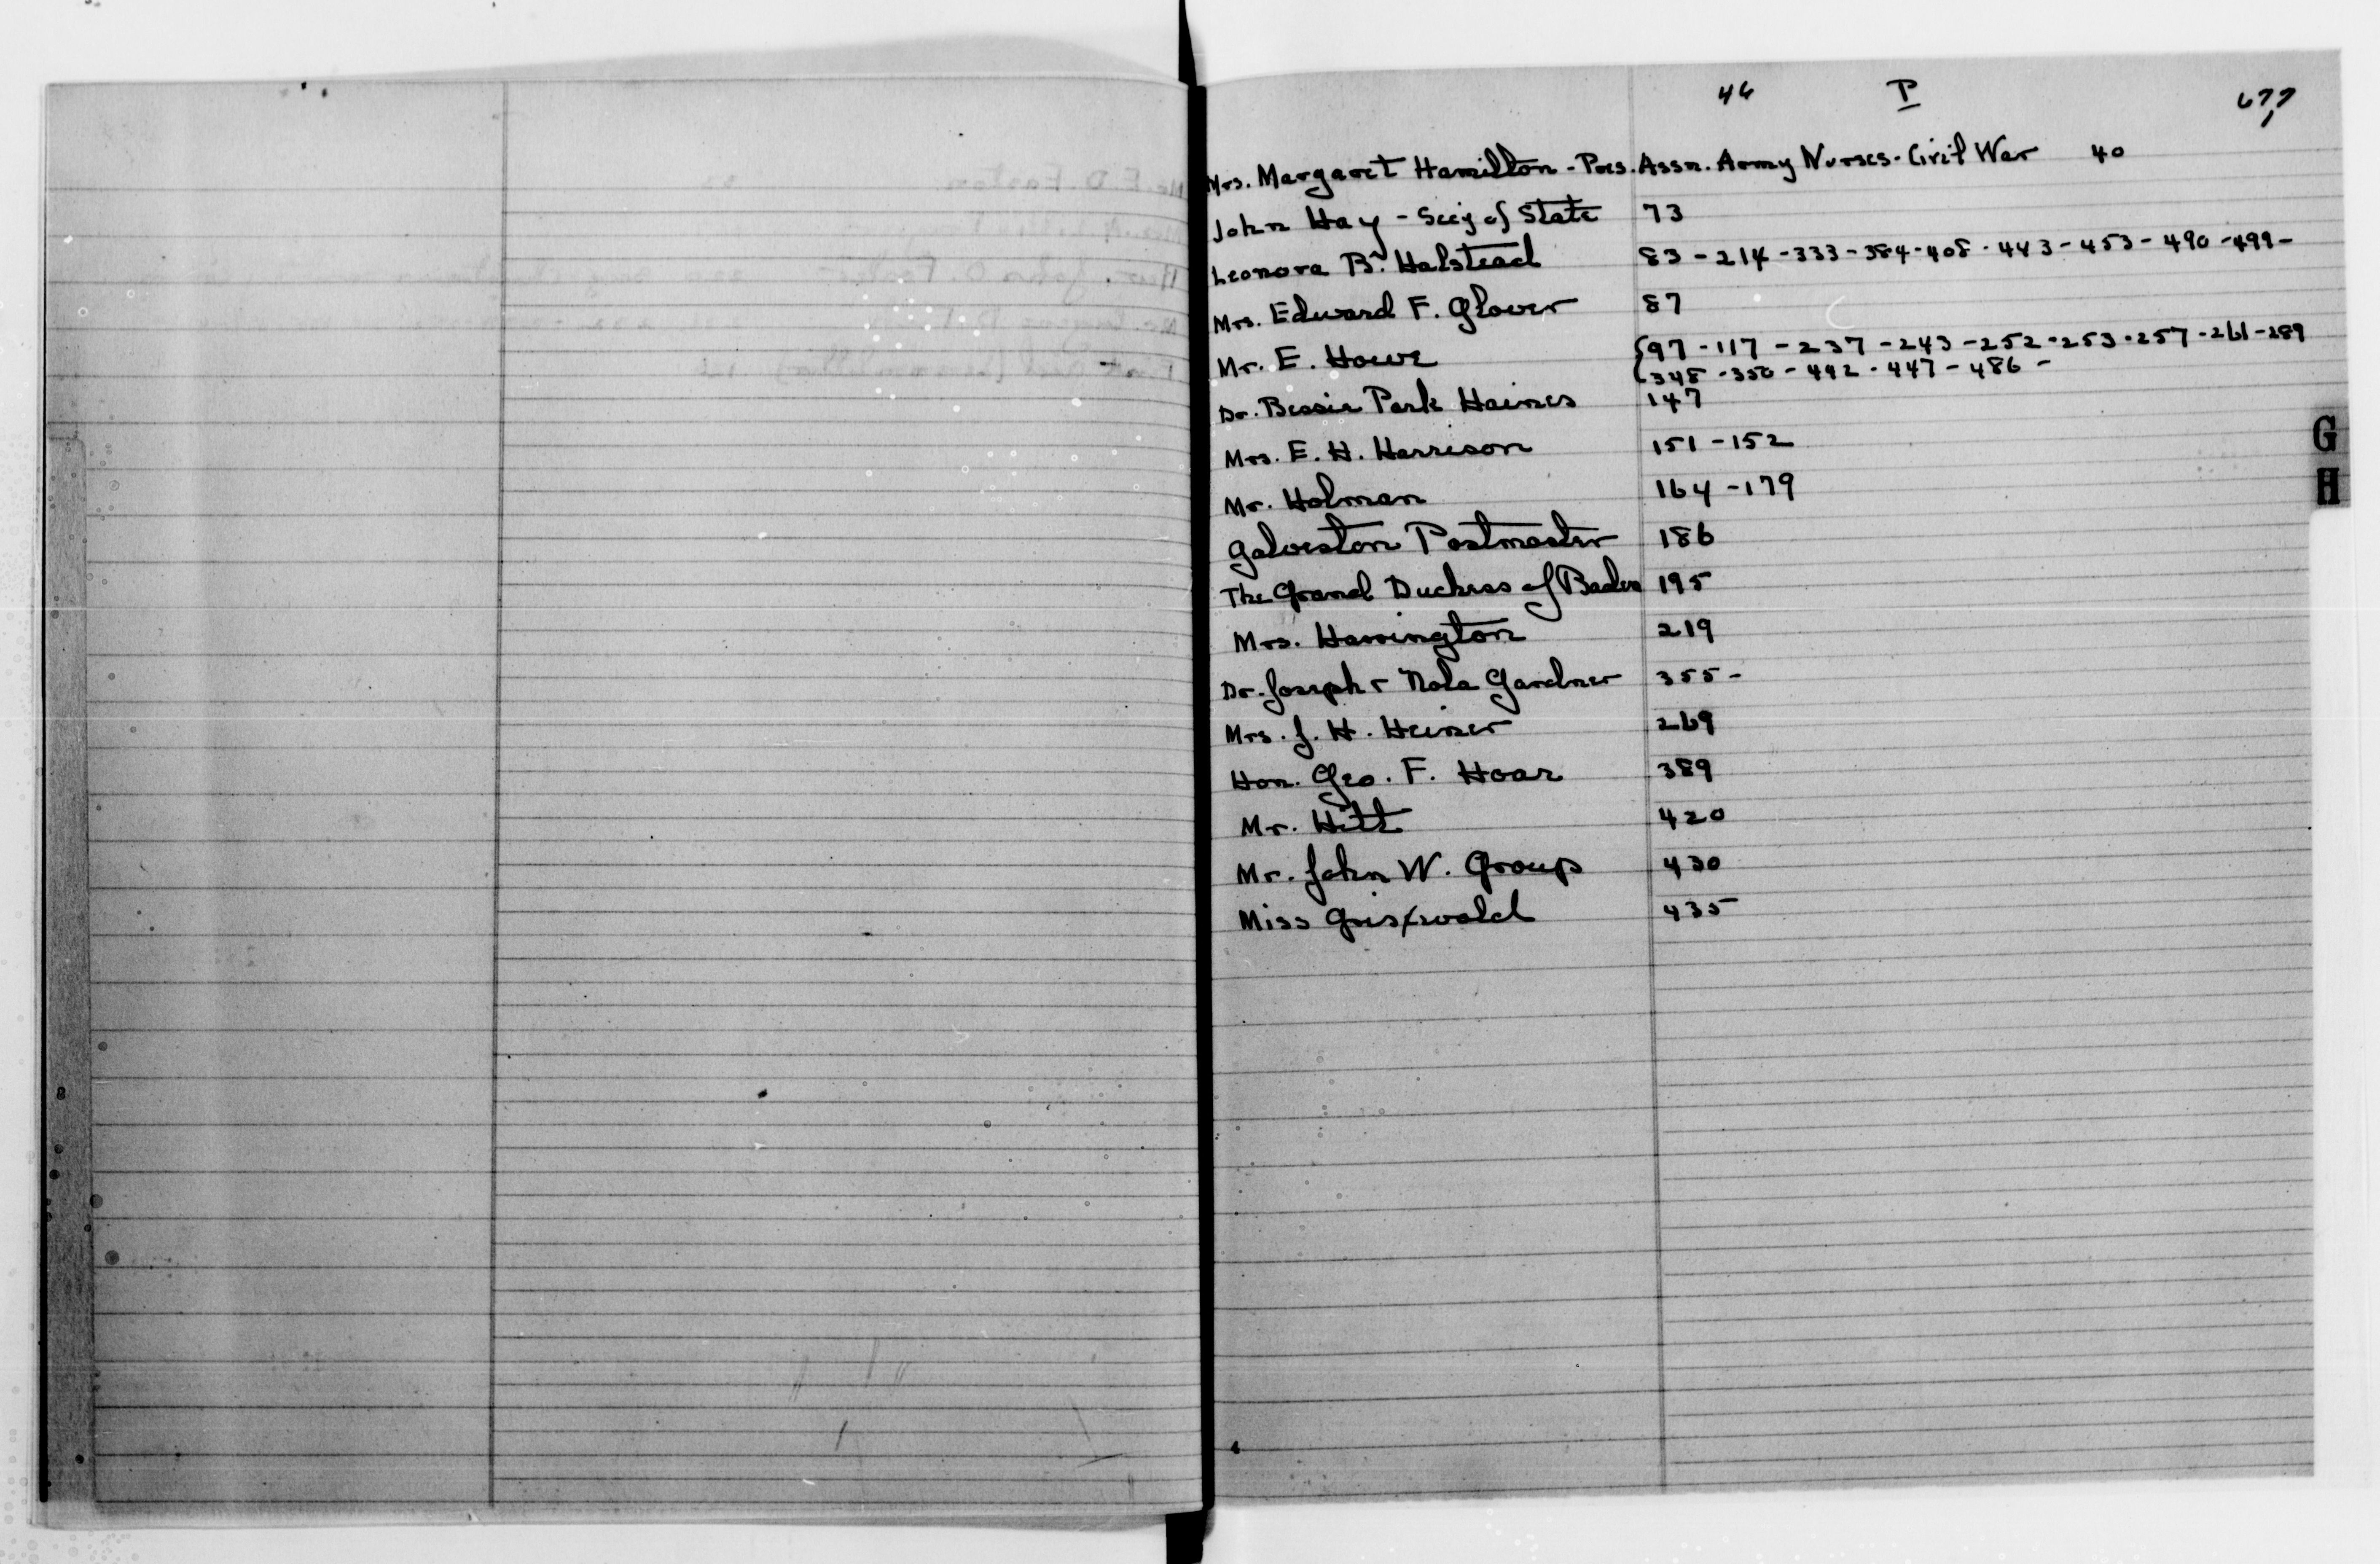 46 P 677
Mrs. Margaret Hamilton - Pres. Assn. Army Nurses - Civil War 40
John Hay - Sec'y of State 73
Leonora B. Halstead 83 - 214 - 333 - 384 - 408 - 443 - 453 - 490 - 499 -
Mrs. Edward F. Glover 87
Mr. E. Howe {97 - 117 - 237 - 243 - 252 - 253 - 257 - 261 - 289
348 - 350 - 442 - 447 - 486 -
Dr. Bessie Park Haines 147
Mrs. E. H. Harrison 151 - 152
Mr. Holman 164 - 179
Galveston Postmaster 186
The Grand Duchess of Baden 195
Mrs. Harrington 219
Dr. Joseph & Nola Gardner 355 -
Mrs. J. H. Heiner 269
Hon. Geo. F. Hoar 389
Mr. Hitt 420
Mr. John W. Group 430
Miss Griswold 435
G
H